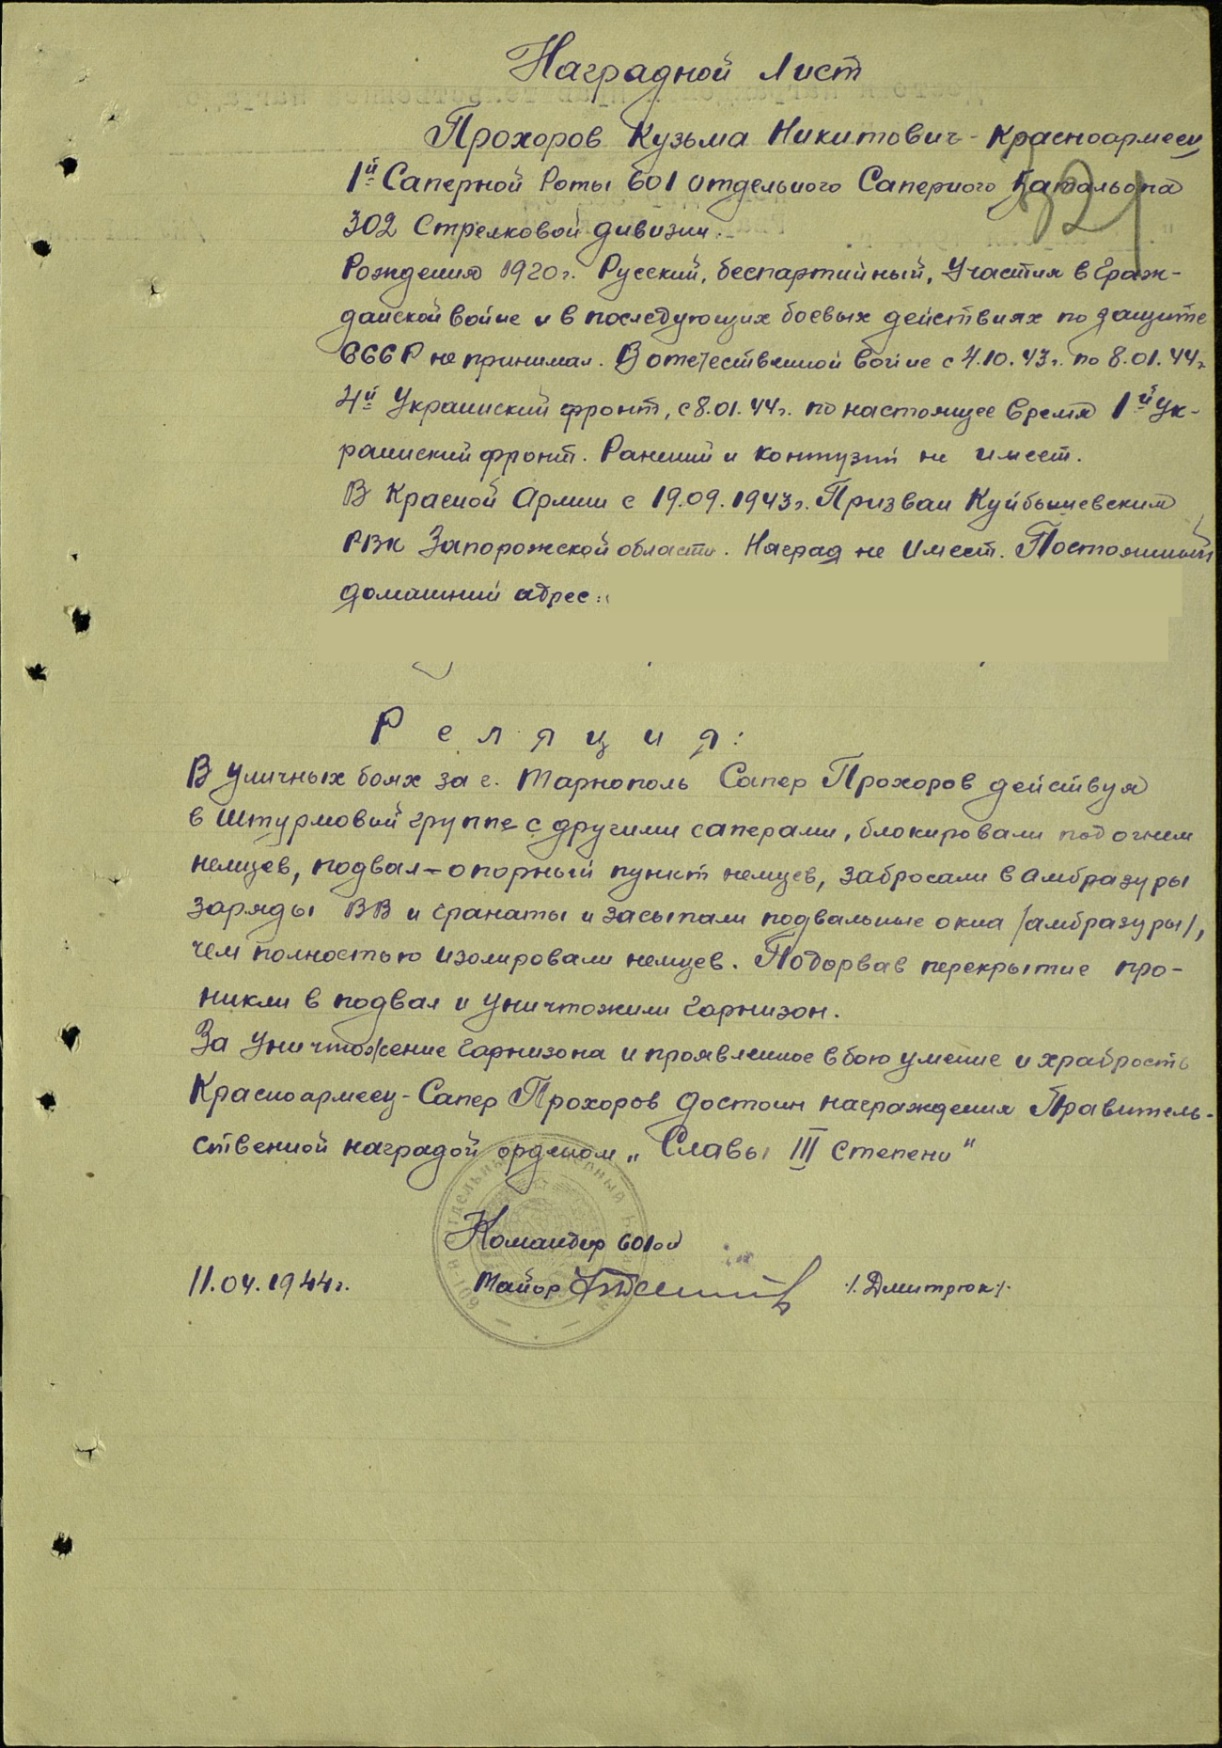 Наградной Лист
Прохоров Кузьма Никитович - Красноармеец
1й Саперной Роты 601 отдельного Саперного Батальона
302 Стрелковой дивизии.
321
Рождения 1920г. Русский, беспартийный, Участия в Граж-
данской войне и в последующих боевых действиях по защите
СССР не принимал. В отечественной войне с 4.10.43г. по 8.01.44г.
4й Украинский фронт, с 8.01.44г. по настоящее время 1й Ук-
раинский фронт. Ранений и контузий не имеет.
В Красной Армии с 19.09.1943г. Призван Куйбышевским
РВК Запорожской области. Наград не имеет. Постоянный
домашний адрес:
Реляция:
В уличных боях за г. Тарнополь Сапер Прохоров действуя
в штурмовой группе с другими саперами, блокировали под огнем
немцев, подвал - опорный пункт немцев, забросали в амбразуры
заряды ВВ и гранаты и засыпали подвальные окна /амбразуры/,
чем полностью изолировали немцев. Подорвав перекрытие про-
никли в подвал и уничтожили гарнизон.
За уничтожение гарнизона и проявленное в бою умение и храбрость
Красноармеец - Сапер Прохоров достоин награждения Правитель-
ственной наградой орденом „Славы III степени"
Командир 601
11.04.1944г. Майор /Дмитрюк/.